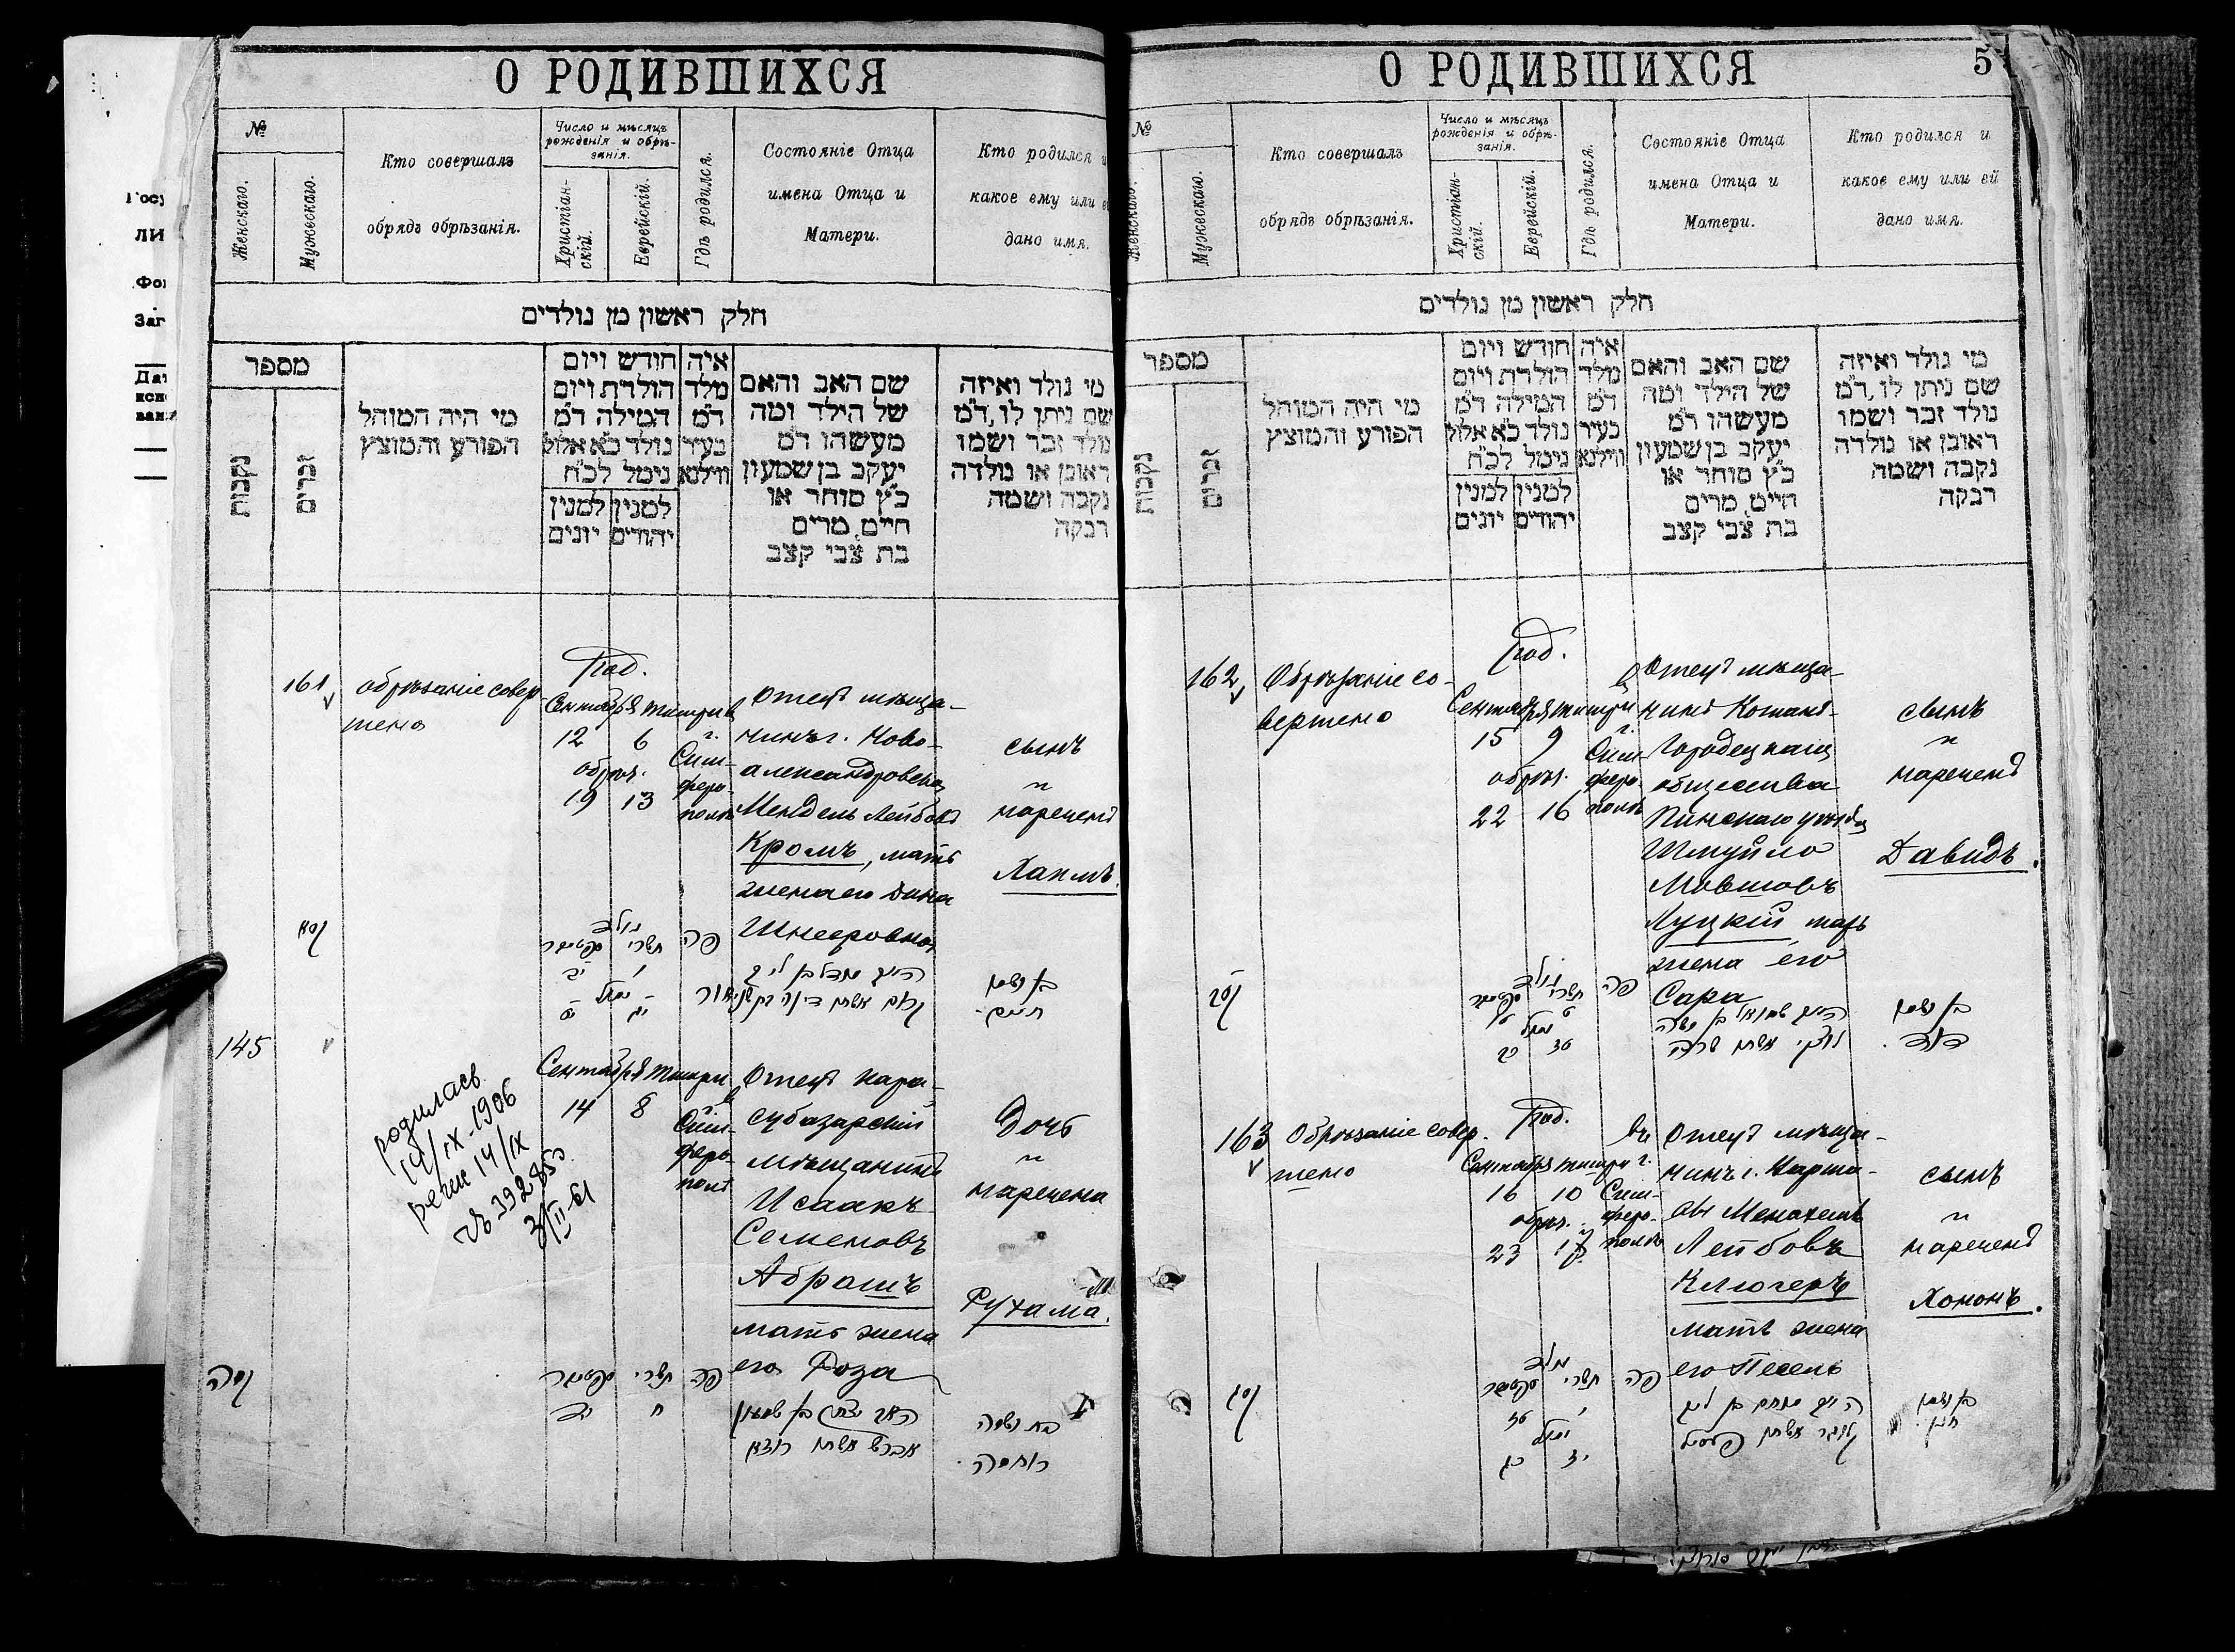 О РОДИВШИХСЯ
№
Женскаго.
Мужескаго.
Кто совершалъ
обрядъ обрѣзанія.
Число и мѣсяцъ
рожденія и обрѣ-
занія.
Христіан-
скій.
Еврейскій.
Гдѣ родился.
Состояніе Отца
имена Отца и
Матери.
Кто родился и
какое ему или ей
дано имя.
חלק ראשון מן נולדים
מספר
נקבות
זכרים
מי היה המוהל
הפורע והמוצץ
חודש ויום
הולדת ויום
המילה ד"מ
נולד כ"א אלול
נימל לכ"ח
למנין למנין
יהודים יונים
איה
מלד
ד"מ
בעיר
ווילנא
שם האב והאם
של הילד ומה
מעשהו ד"מ
יעקב בן שמעון
כ"ץ סוחר או
חייט, מרים
בת צבי קצב
מי נולד ואיזה
שם ניתן לו, ד"מ
נולד זכר ושמו
ראובן או נולדה
נקבה ושמה
רבקה
161
обрѣзаніе совер-
шено
Род.
Сентября Тишри
12 6
обрѣз.
19 13
в
г.
Сим-
феро-
полѣ
Отецъ мѣща-
нинъ г. Ново-
александровска
Мендель Лейбовъ
Кромъ, мать
жена его Дина
Шнееровна
сынъ
"
нареченъ
Хаимъ.
קסא
נולד
תשרי ספטמבר
ו יב
נמול
יג יט
פה
בן ושמו
חיים
145
родилась
14/IX-1906
Сентября Тишри
14 8
в
г.
Сим-
феро-
полѣ
Отецъ кара-
субазарскій
мѣщанинъ
Исаакъ
Семеновъ
Абрашъ
мать жена
его Роза
Дочь
"
наречена
Рухама.
קמה
פה תשרי ספטמבר
ח יד
האב יצחק בן שמעון
אברש אשתו רוזא
בת ושמה
רוחמה
О РОДИВШИХСЯ
5
№
Женскаго.
Мужескаго.
Кто совершалъ
обрядъ обрѣзанія.
Число и мѣсяцъ
рожденія и обрѣ-
занія.
Христіан-
скій.
Еврейскій.
Гдѣ родился.
Состояніе Отца
имена Отца и
Матери.
Кто родился и
какое ему или ей
дано имя.
חלק ראשון מן נולדים
מספר
נקבות
זכרים
מי היה המוהל
הפורע והמוצץ
חודש ויום
הולדת ויום
המילה ד"מ
נולד כ"א אלול
נימל לכ"ח
למנין למנין
יהודים יונים
איה
מלד
ד"מ
בעיר
ווילנא
שם האב והאם
של הילד ומה
מעשהו ד"מ
יעקב בן שמעון
כ"ץ סוחר או
חייט, מרים
בת צבי קצב
מי נולד ואיזה
שם ניתן לו, ד"מ
נולד זכר ושמו
ראובן או נולדה
נקבה ושמה
רבקה
162
Обрѣзаніе со-
вершено
Род.
Сентября Тишри
15 9
обрѣз.
22 16
в
г.
Сим-
феро-
полѣ
Отецъ мѣща-
нинъ
Городецкаго
общества
Пинскаго уѣзда
Шмуйло
Мовшовъ
Луцкій мать
жена его
Сара
сынъ
"
нареченъ
Давидъ.
קסב
נולד
פה תשרי ספטמבר
ט טו
נמול
טז כב
בן ושמו
דוד
163
Обрѣзаніе совер-
шено
Род.
Сентября Тишри
16 10
обрѣз.
23 17
въ
г.
Сим-
феро-
полѣ
Отецъ мѣща-
нинъ г.
Лейбовъ
Клюгеръ
мать жена
его Песель
сынъ
"
нареченъ
Хононъ.
קסג
נולד
פה תשרי ספטמבר
י טז
נמול
יז כג
בן ושמו